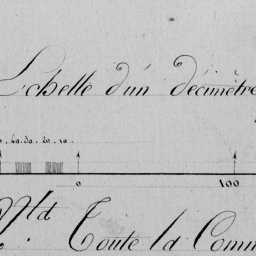 Echelle d'un décimètre
40. 30. 20. 10.
0 100
Nta Toute la Comm